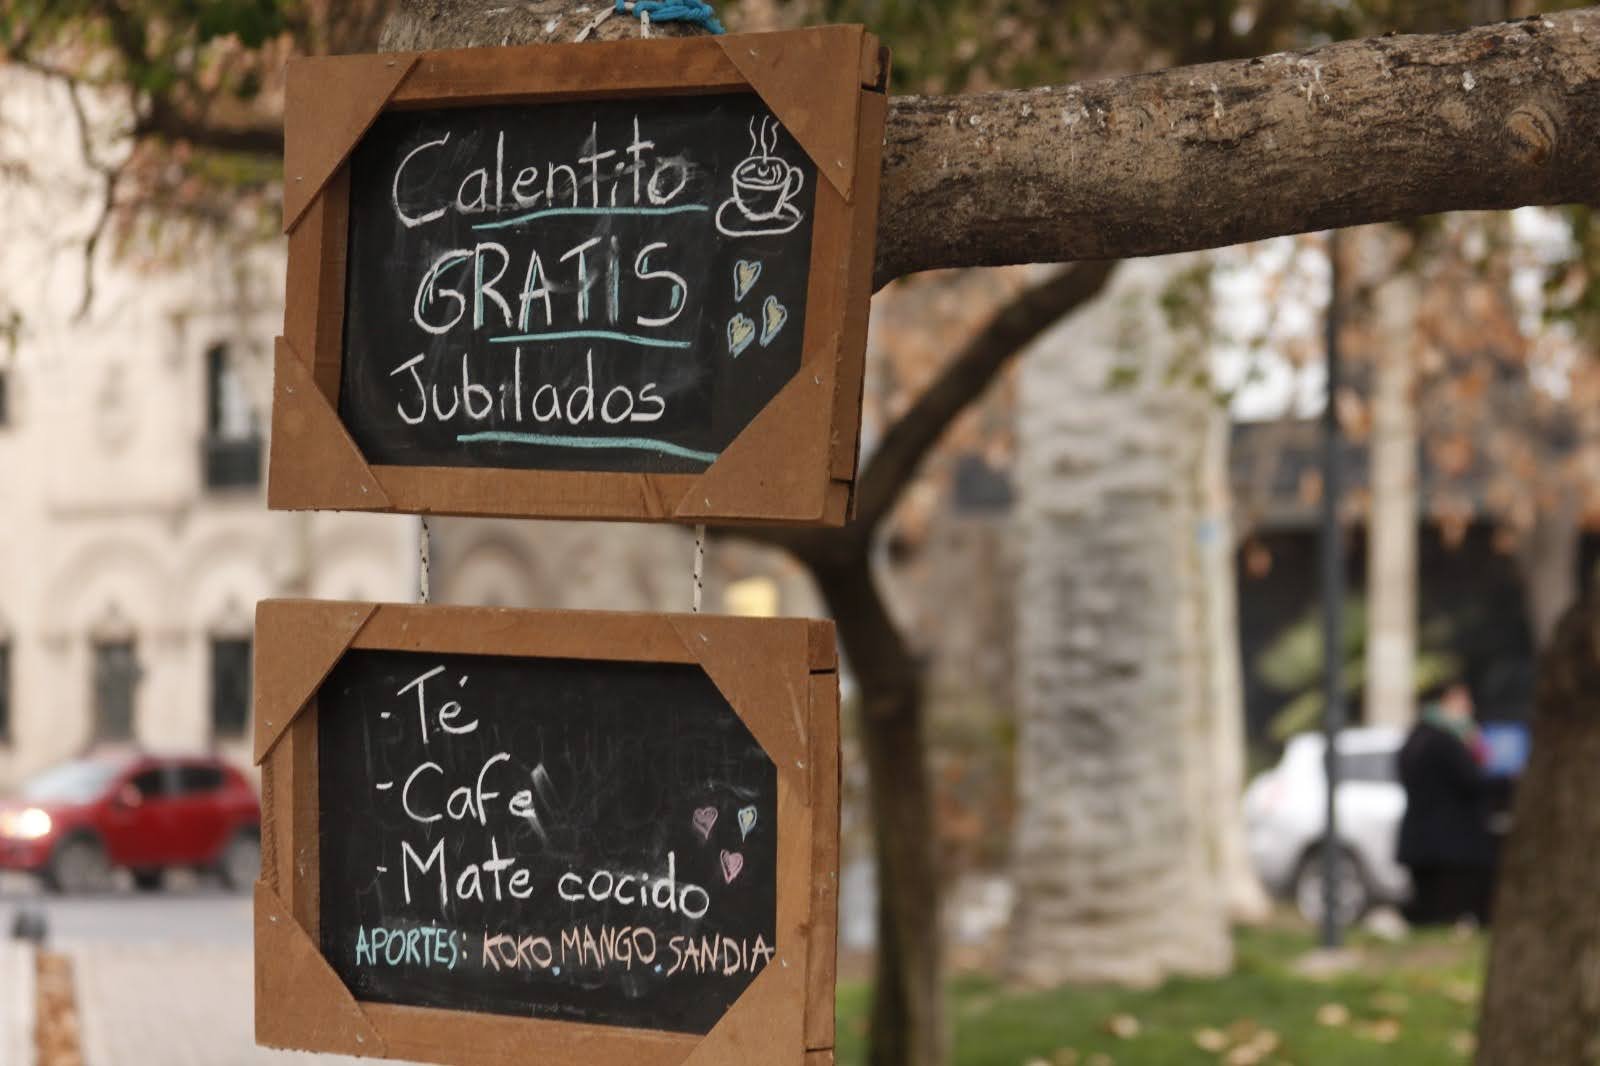 Calentito
GRATIS
Jubilados
- Té
- Cafe
- Mate cocido
APORTES: KOKO.MANGO.SANDIA